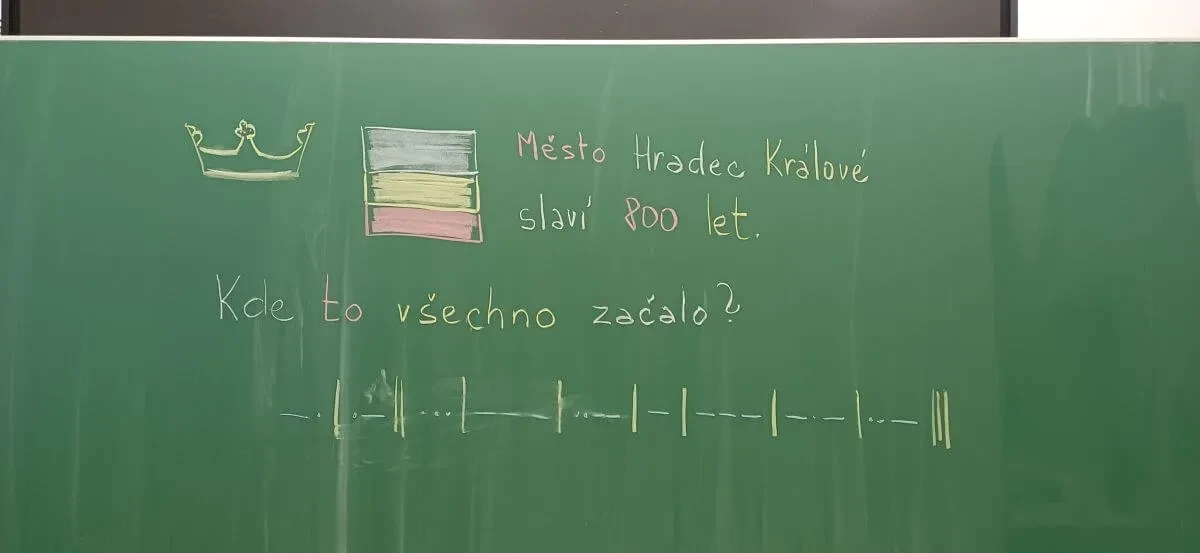 Město Hradec Králové
slaví 800 let.
Kde to všechno začalo?
-.|.-||...|——|...-|-|---|-.-|..-|||